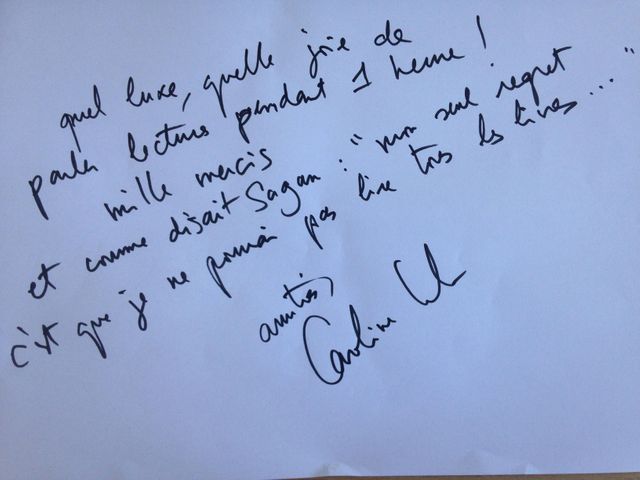 quel luxe, quelle joie de
parler lecture pendant 1 heure !
mille mercis
et comme disait Sagan : "mon seul regret
c'est que je ne pourrai pas lire tous les livres..."
amitiés
Caroline